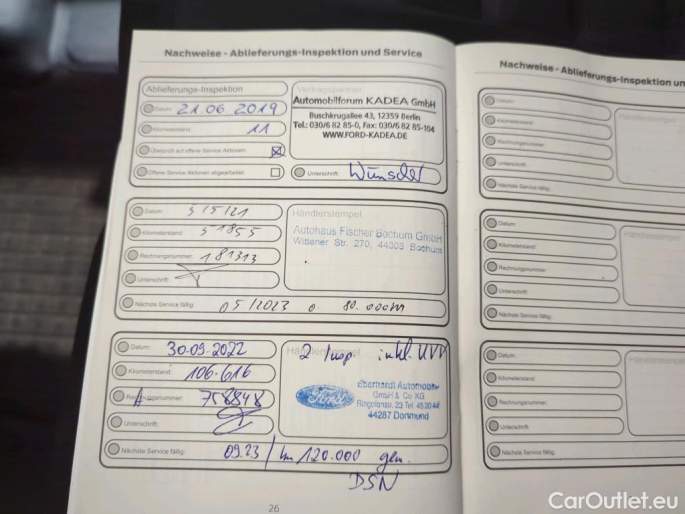 Nachweise - Ablieferungs-Inspektion und Service
Ablieferungs-Inspektion
Datum: 21.06.2019
Kilometerstand: 11
Überprüft auf offene Service Aktionen
Offene Service Aktionen abgearbeitet
Vertragspartner
Automobilforum KADEA GmbH
Buschkrugallee 43, 12359 Berlin
Tel.: 030/6 82 85-0, Fax: 030/6 82 85-104
WWW.FORD-KADEA.DE
Unterschrift:
Datum:
Kilometerstand: 51855
Rechnungsnummer: 181313
Unterschrift:
Nächste Service fällig: 05/2023 o 80.000km
Händlerstempel
Autohaus Fischer Bochum GmbH
Wittener Str. 270, 44803 Bochum
Datum: 30.09.2022
Kilometerstand: 106.616
Rechnungsnummer: A 758848
Unterschrift:
Nächste Service fällig: 09.23 / km 120.000 gem.
DSN
Händlerstempel
2 Insp. inkl. UVV
Ford
Eberhardt Automobile
GmbH & Co KG
44287 Dortmund
26
Nachweise - Ablieferungs-Inspektion un
Datum:
Kilometerstand:
Rechnungsnummer:
Unterschrift:
Nächste Service fällig:
Händlerstempel
Datum:
Kilometerstand:
Rechnungsnummer:
Unterschrift:
Nächste Service fällig:
Händlerstempel
Datum:
Kilometerstand:
Rechnungsnummer:
Unterschrift:
Nächste Service fällig:
Händlerstempel
CarOutlet.eu